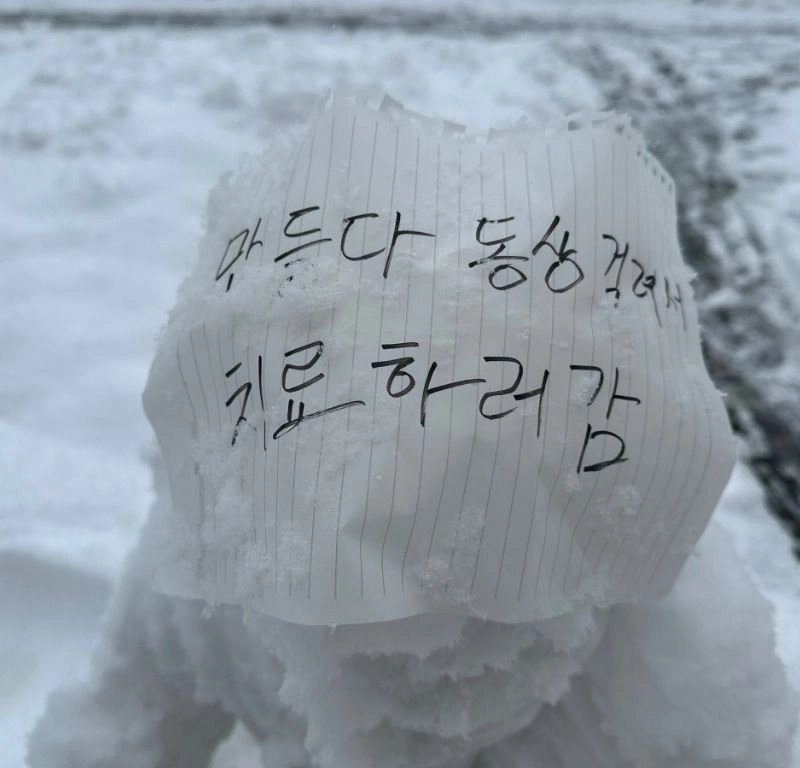 만들다 동상 걸려서
치료 하러 감